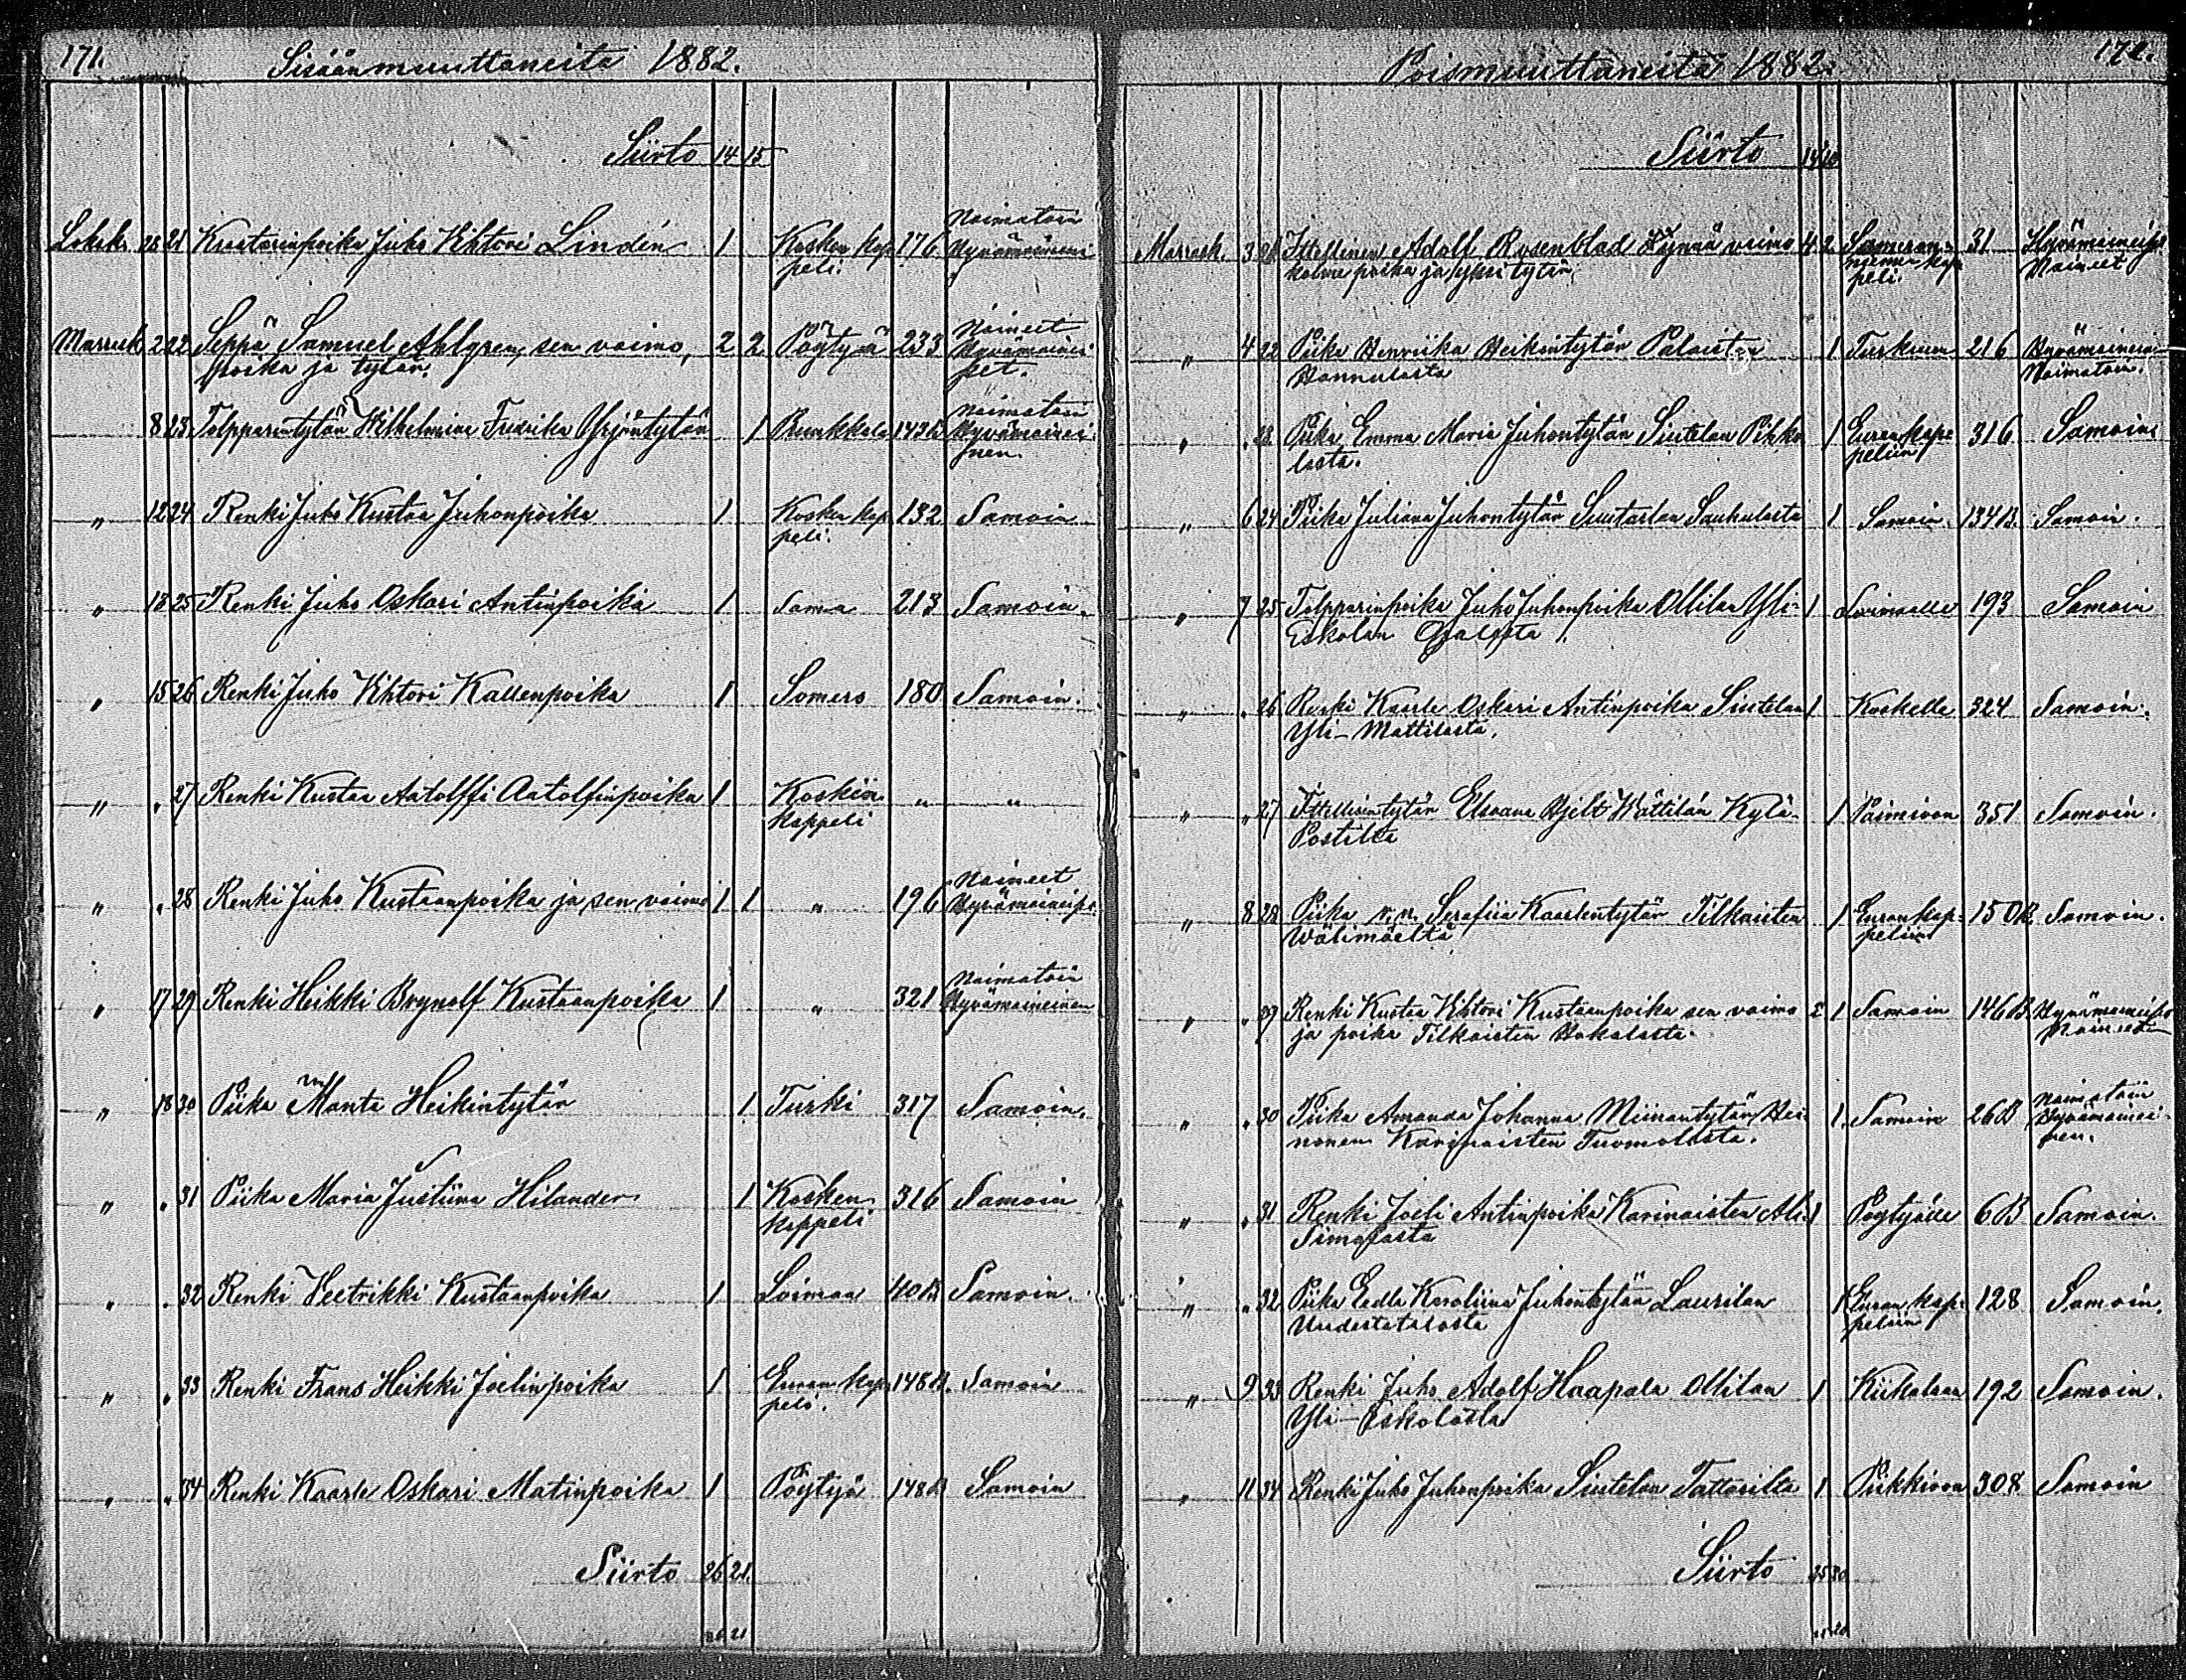 171.
Sisäänmuuttaneita 1882.
Siirto 14 15
Lokak. 28 21 Kraatarinpoika Juho Vihtori Lindén 1 Kosken kap 176 Naimatoin
peli. Hyvämaineinen
Marrask 2 22 Seppä Samuel Ahlgren, sen vaimo, 2 2 Pöytyä 233 Naineet
poika ja tytär. Hyvämainei
set.
8 23 Tolpparintytär Wilhelmina Fredrika Yrjöntytär 1 Prunkkala 143B Naimatoin
Hyvämainei
nen.
" 12 24 Renki Juho Kustaa Juhonpoika 1 Kosken kap 132 Samoin
peli.
" 13 25 Renki Juho Oskari Antinpoika 1 Sama 213 Samoin.
" 15 26 Renki Juho Vihtori Kallenpoika 1 Somero 180 Samoin.
" " 27 Renki Kustaa Aatolffi Aatolfinpoika 1 Koskin " "
kappeli
" " 28 Renki Juho Kustaanpoika ja sen vaimo 1 1 " 196 Naineet
Hyvämaineiset
" 17 29 Renki Heikki Brynolf Kustaanpoika 1 " 321 Naimatoin
Hyvämaineinen
" 18 30 Piika Manta Heikintytär 1 Turki 317 Samoin.
" " 31 Piika Maria Justiina Hilander 1 Kosken 316 Samoin
kappeli
" " 32 Renki Veetrikki Kustaanpoika 1 Loimaa 40B Samoin.
" " 33 Renki Frans Heikki Joelinpoika 1 Euran kap 148B. Samoin
peli.
" " 34 Renki Kaarle Oskari Matinpoika 1 Pöytyä 148B Samoin
Siirto 26 21.
26 21
172.
Poismuuttaneita 1882.
Siirto
Marrask. 3 Itsellinen Adolf Rosenblad vaimo 4 2 31
kolme poika ja yksi tytär peli. Naineet
" 4 22 Piika Henriika Heikintytär Palaisten 1 Turkuun 216 Hyvämainein
Hannulasta Naimatoin.
" " 23 Piika Emma Maria Juhontytär Siutelan Pihko 1 Euran kap 316 Samoin
lasta. peliin
" 6 24 Piika Juliana Juhontytär Suutarlan Sauhulasta 1 Samoin. 134B. Samoin.
" 7 25 Tolpparinpoika Juho Juhonpoika Ollilan Yli- 1 Loimaalle 193 Samoin
Eskolan
" " 26 Renki Kaarle Oskari Antinpoika Siutelan 1 Koskelle 324 Samoin.
Yli-Mattilasta.
" " 27 Itsellisentytär Hjelt Wättilän Kylä- 1 Paimioon 351 Samoin.
Postilta
" 8 28 Piika Serafiia Kaarlentytär Tilkaisten 1 Euran kap- 150B Samoin.
Wälimäeltä peliin
" " 29 Renki Kustaa Vihtori Kustaanpoika sen vaimo 2 1 Samoin 146B. Hyvämaineiset
ja poika Tilkaisten Hakalasta. Naineet
" " 30 Piika Amanda Johanna Miinantytär Hei- 1. Samoin 26B Naimatoin
nonen Karinaisten Tuomolasta. Hyvämainei
nen.
" " 31 Renki Joeli Antinpoika Karinaisten Ali- 1 Pöytyälle 6B Samoin.
Simolasta
" " 32 Piika Eedla Karoliina Juhontytär Laurilan 1 Euran kap- 128 Samoin.
Uudestatalosta peliin
" 9 33 Renki Juho Adolf Haapala Ollilan 1 Kiikalaan 192 Samoin.
Yli-Eskolasta
" 11 34 Renki Juho Juhonpoika Siutelan Tattarilta 1 Piikkioon 308 Samoin
Siirto 25 20